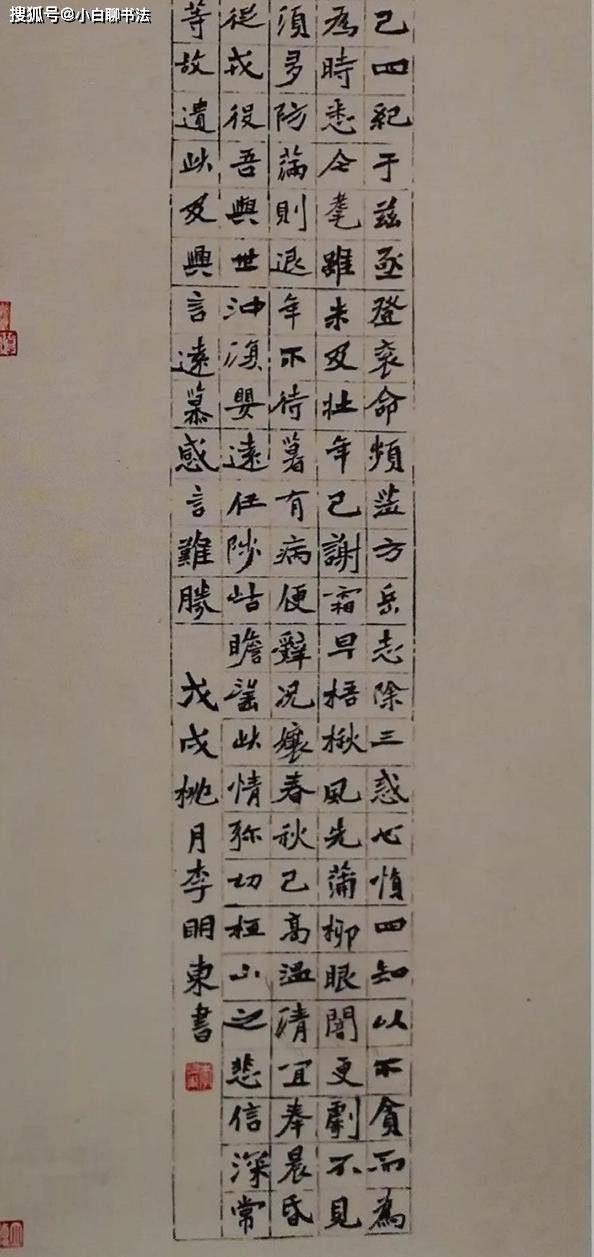 搜狐号@小白聊书法
已四紀于茲亟登衮命頻莅方岳志除三惑心慎四知以不貪而為
為時悉今耄雖未及壯年已謝霜早梧楸風先蒲柳眼闇更劇不見
須多防滿則退年不待暮有病便辭况孃春秋已高温清宜奉晨昏
從戎役吾與世沖渙嬰遠任陟岵瞻望此情弥切桓山之悲信深常
等故遺此及興言遠慕感言難勝
戊戌桃月李明東書